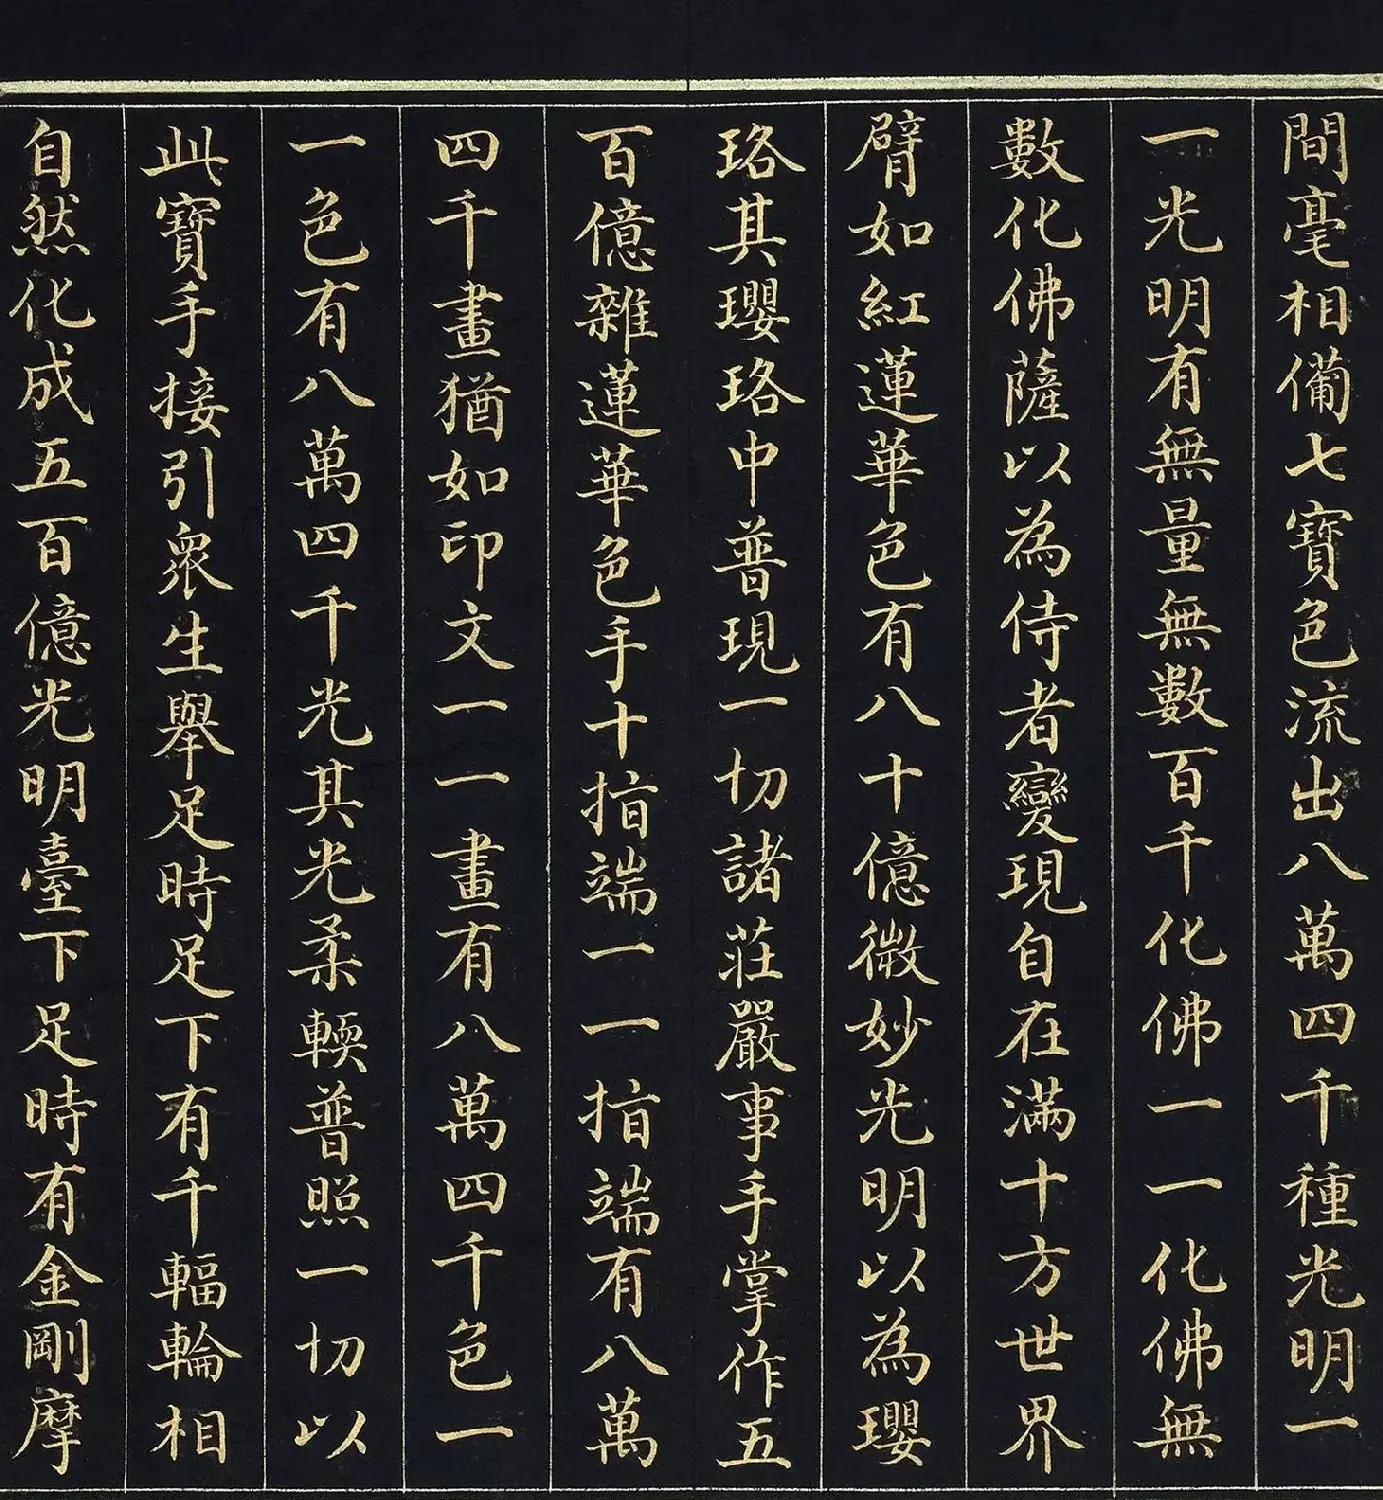 間毫相備七寶色流出八萬四千種光明一
一光明有無量無數百千化佛一一化佛無
數化佛薩以為侍者變現自在滿十方世界
臂如紅蓮華色有八十億微妙光明以為瓔
珞其瓔珞中普現一切諸莊嚴事手掌作五
百億雜蓮華色手十指端一一指端有八萬
四千畫猶如印文一一畫有八萬四千色一
一色有八萬四千光其光柔輭普照一切以
此寶手接引眾生舉足時足下有千輻輪相
自然化成五百億光明臺下足時有金剛摩